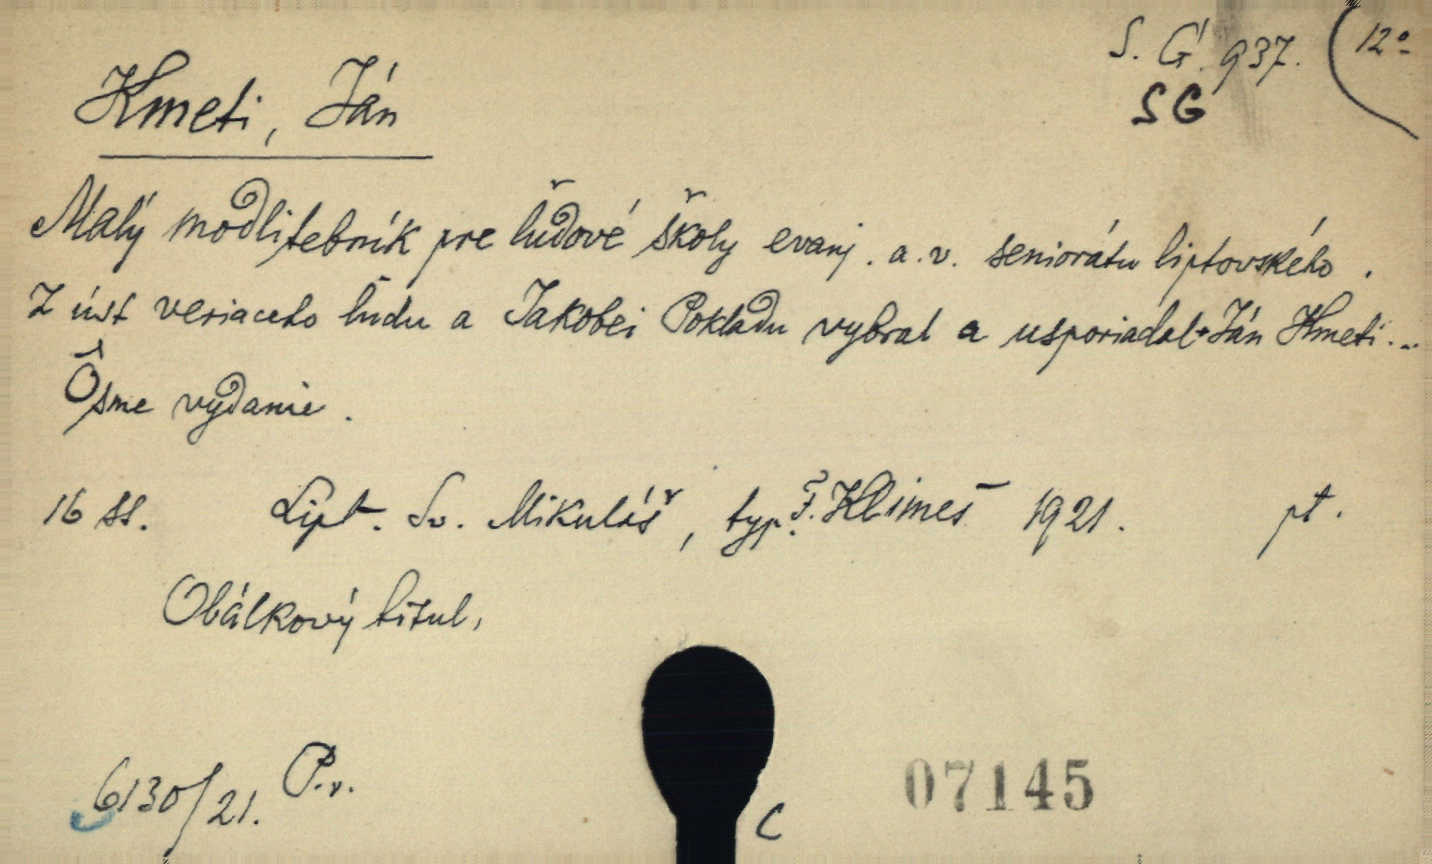 S. G. 937. 12°
SG
Kmeti, Ján
Malý modlitebník pre ľudové školy evanj. a. v. seniorátu liptovského.
Z úst veriaceho ľudu a Jakobei Pokladu vybral a usporiadal Ján Kmeti...
Ôsme vydanie.
16 ss. Lipt. Sv. Mikuláš, typ. F. Klimeš 1921. pt.
Obálkový titul,
6130/21. P.v.
C
07145